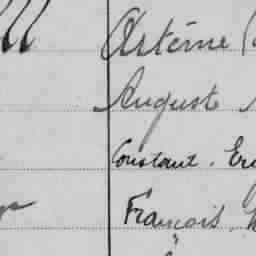 Astérine
Auguste
Constant. Er
François.